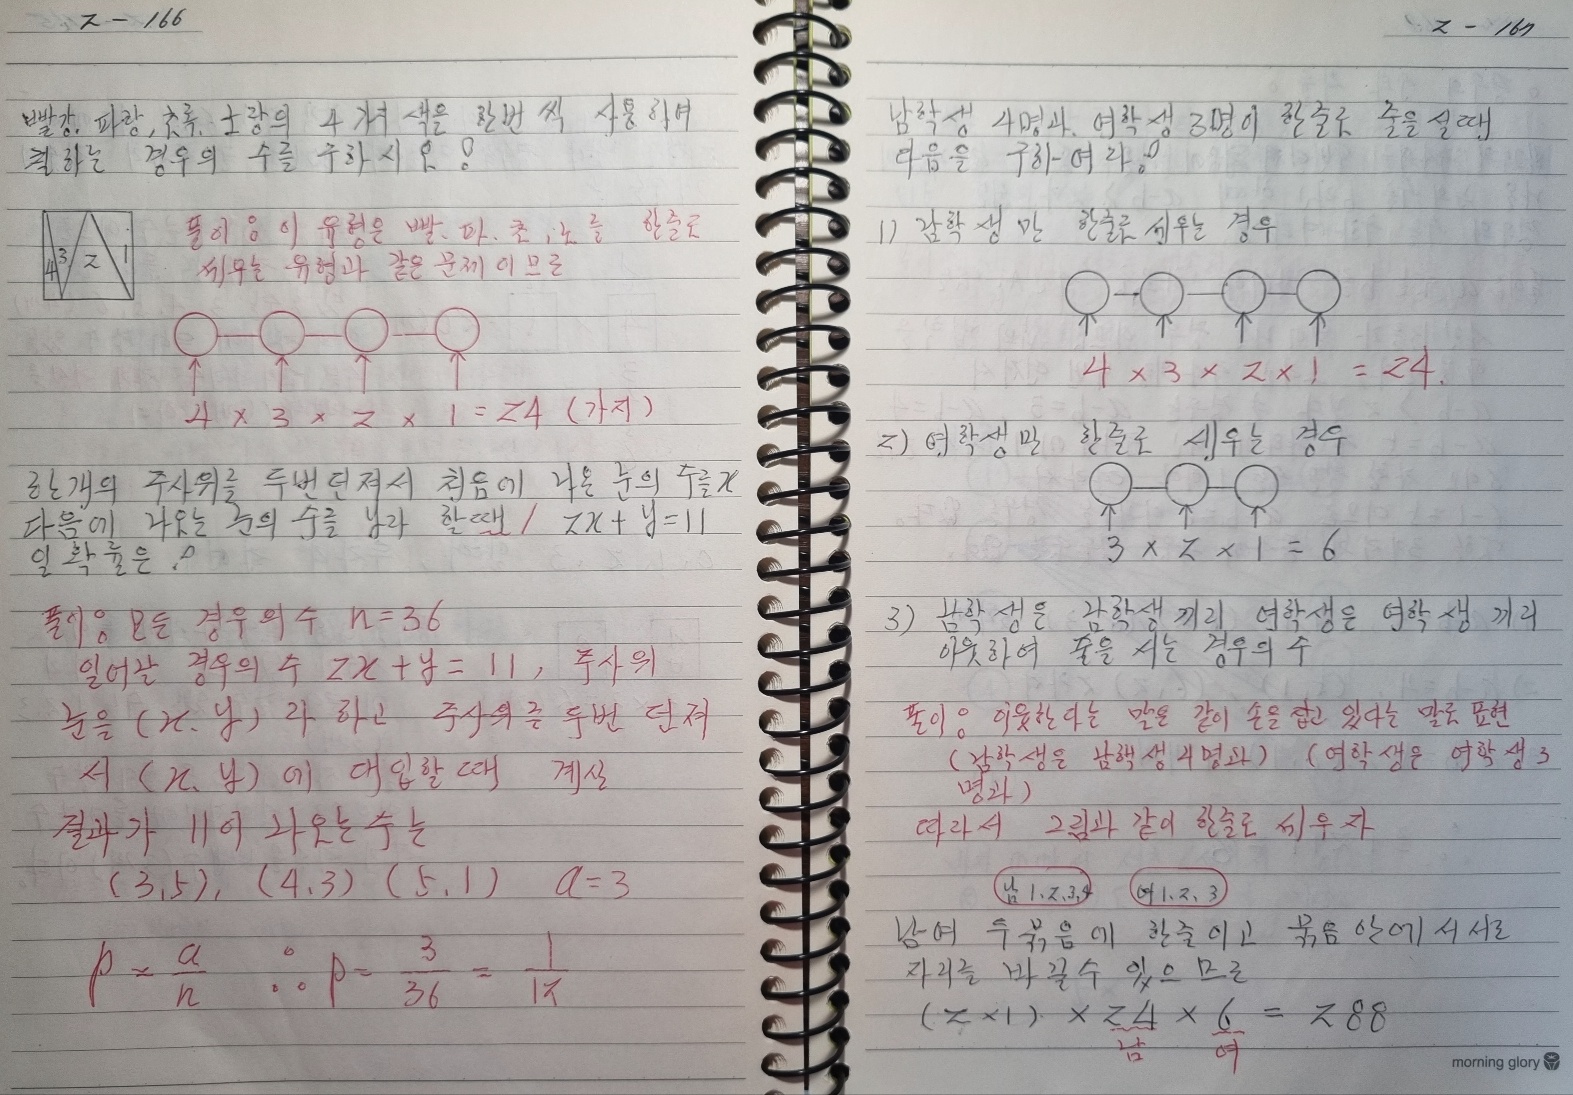 2 - 166
빨강, 파랑, 초록, 노랑의 4가지 색을 한번 씩 사용하여
칠하는 경우의 수를 구하시오?
4 3 2 1
풀이) 이 유형은 빨. 파. 초, 노를 한줄로
세우는 유형과 같은 문제이므로
4 × 3 × 2 × 1 = 24 (가지)
한개의 주사위를 두번던져서 처음에 나온 눈의 수를 x
다음에 나오는 눈의 수를 y라 할때 / 2x + y = 11
일 확률은?
풀이) 모든 경우의 수 n = 36
일어날 경우의 수 2x + y = 11, 주사위
눈을 (x. y) 라 하고 주사위를 두번 던져
서 (x. y) 에 대입할때 계산
결과가 11이 나오는 수는
(3,5), (4,3) (5,1) a = 3
p = a/n ∴ p = 3/36 = 1/12
2 - 167
남학생 4명과 여학생 3명이 한줄로 줄을 설때
다음을 구하여라?
1) 남학생만 한줄로 세우는 경우
4 × 3 × 2 × 1 = 24.
2) 여학생만 한줄로 세우는 경우
3 × 2 × 1 = 6
3) 남학생은 남학생끼리 여학생은 여학생끼리
이웃하여 줄을 서는 경우의 수
풀이) 이웃한다는 말은 같이 손을 잡고 있다는 말로 표현
(남학생은 남핵생 4명과) (여학생은 여학생 3
명과)
따라서 그림과 같이 한줄로 세우자
남 1.2.3.4 여 1.2.3
남여 두묶음에 한줄이고 묶음 안에서 서로
자리를 바꿀수 있으므로
(2×1) × 24 × 6 = 288
남 여
morning glory